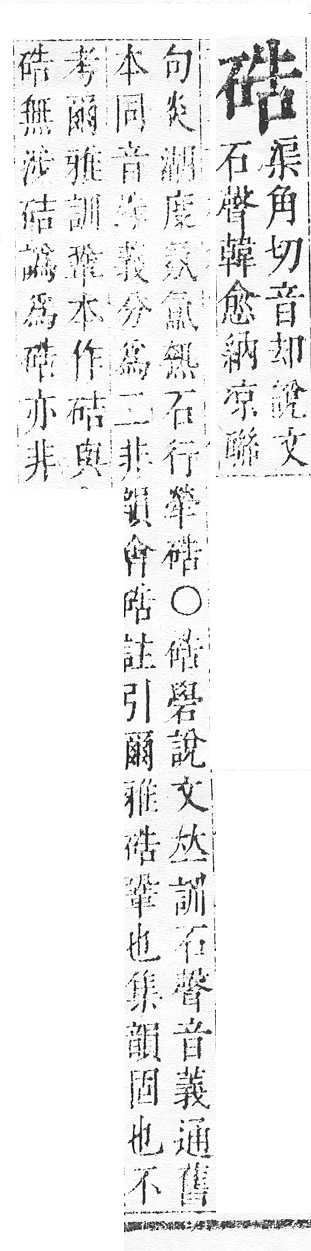 硞
渠角切音却說文
石聲韓愈納凉聯
句炎湖度氛氳熱石行犖硞〇硞礐說文𠀤訓石聲音義通舊
本同音殊義分爲二非韻會硞註引爾雅硞鞏也集韻固也不
考爾雅訓鞏本作硈與
硞無涉硈譌爲硞亦非